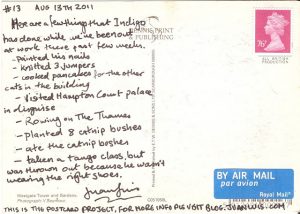 #13 AUG 13TH 2011
Here are a few things that Indigo
has done while we've been out
at work these past few weeks.
- Painted his nails
- knitted 3 jumpers
- cooked pancakes for the other
cats in the building
- Visited Hampton Court palace
in disguise
- Rowing on The Thames
- planted 8 catnip bushes
- ate the catnip bushes
- taken a tango class, but
was thrown out because he wasn't
wearing the right shoes.
Juan Luis
THIS IS THE POSTCARD PROJECT, FOR MORE INFO PLS VISIT BLOG.JUANLUIS.COM
PRINT
& PUBLISHING
76
BY AIR MAIL
par avion
Royal Mail
Westgate Tower and Gardens.
Photograph: V Seymour